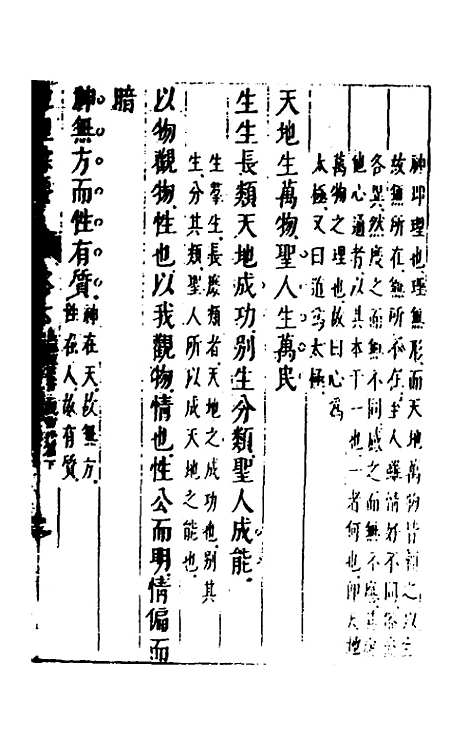 神即理也理無形而天地萬物皆預之以生
故無所在無所不在至人雖情好不同
各異然度之而無不同感之而無不應其
他心通者以其本于一也一者何也即天地
萬物之理也故曰心為
太極又曰道為太極
天地生萬物聖人生萬民
生生長類天地成功別生分類聖人成能
生羣生長庶類者天地之成功也別其
生分其類聖人所以成天地之能也
以物觀物性也以我觀物情也性公而明情偏而
暗
神無方而性有質神在天故無方
性在人故有質